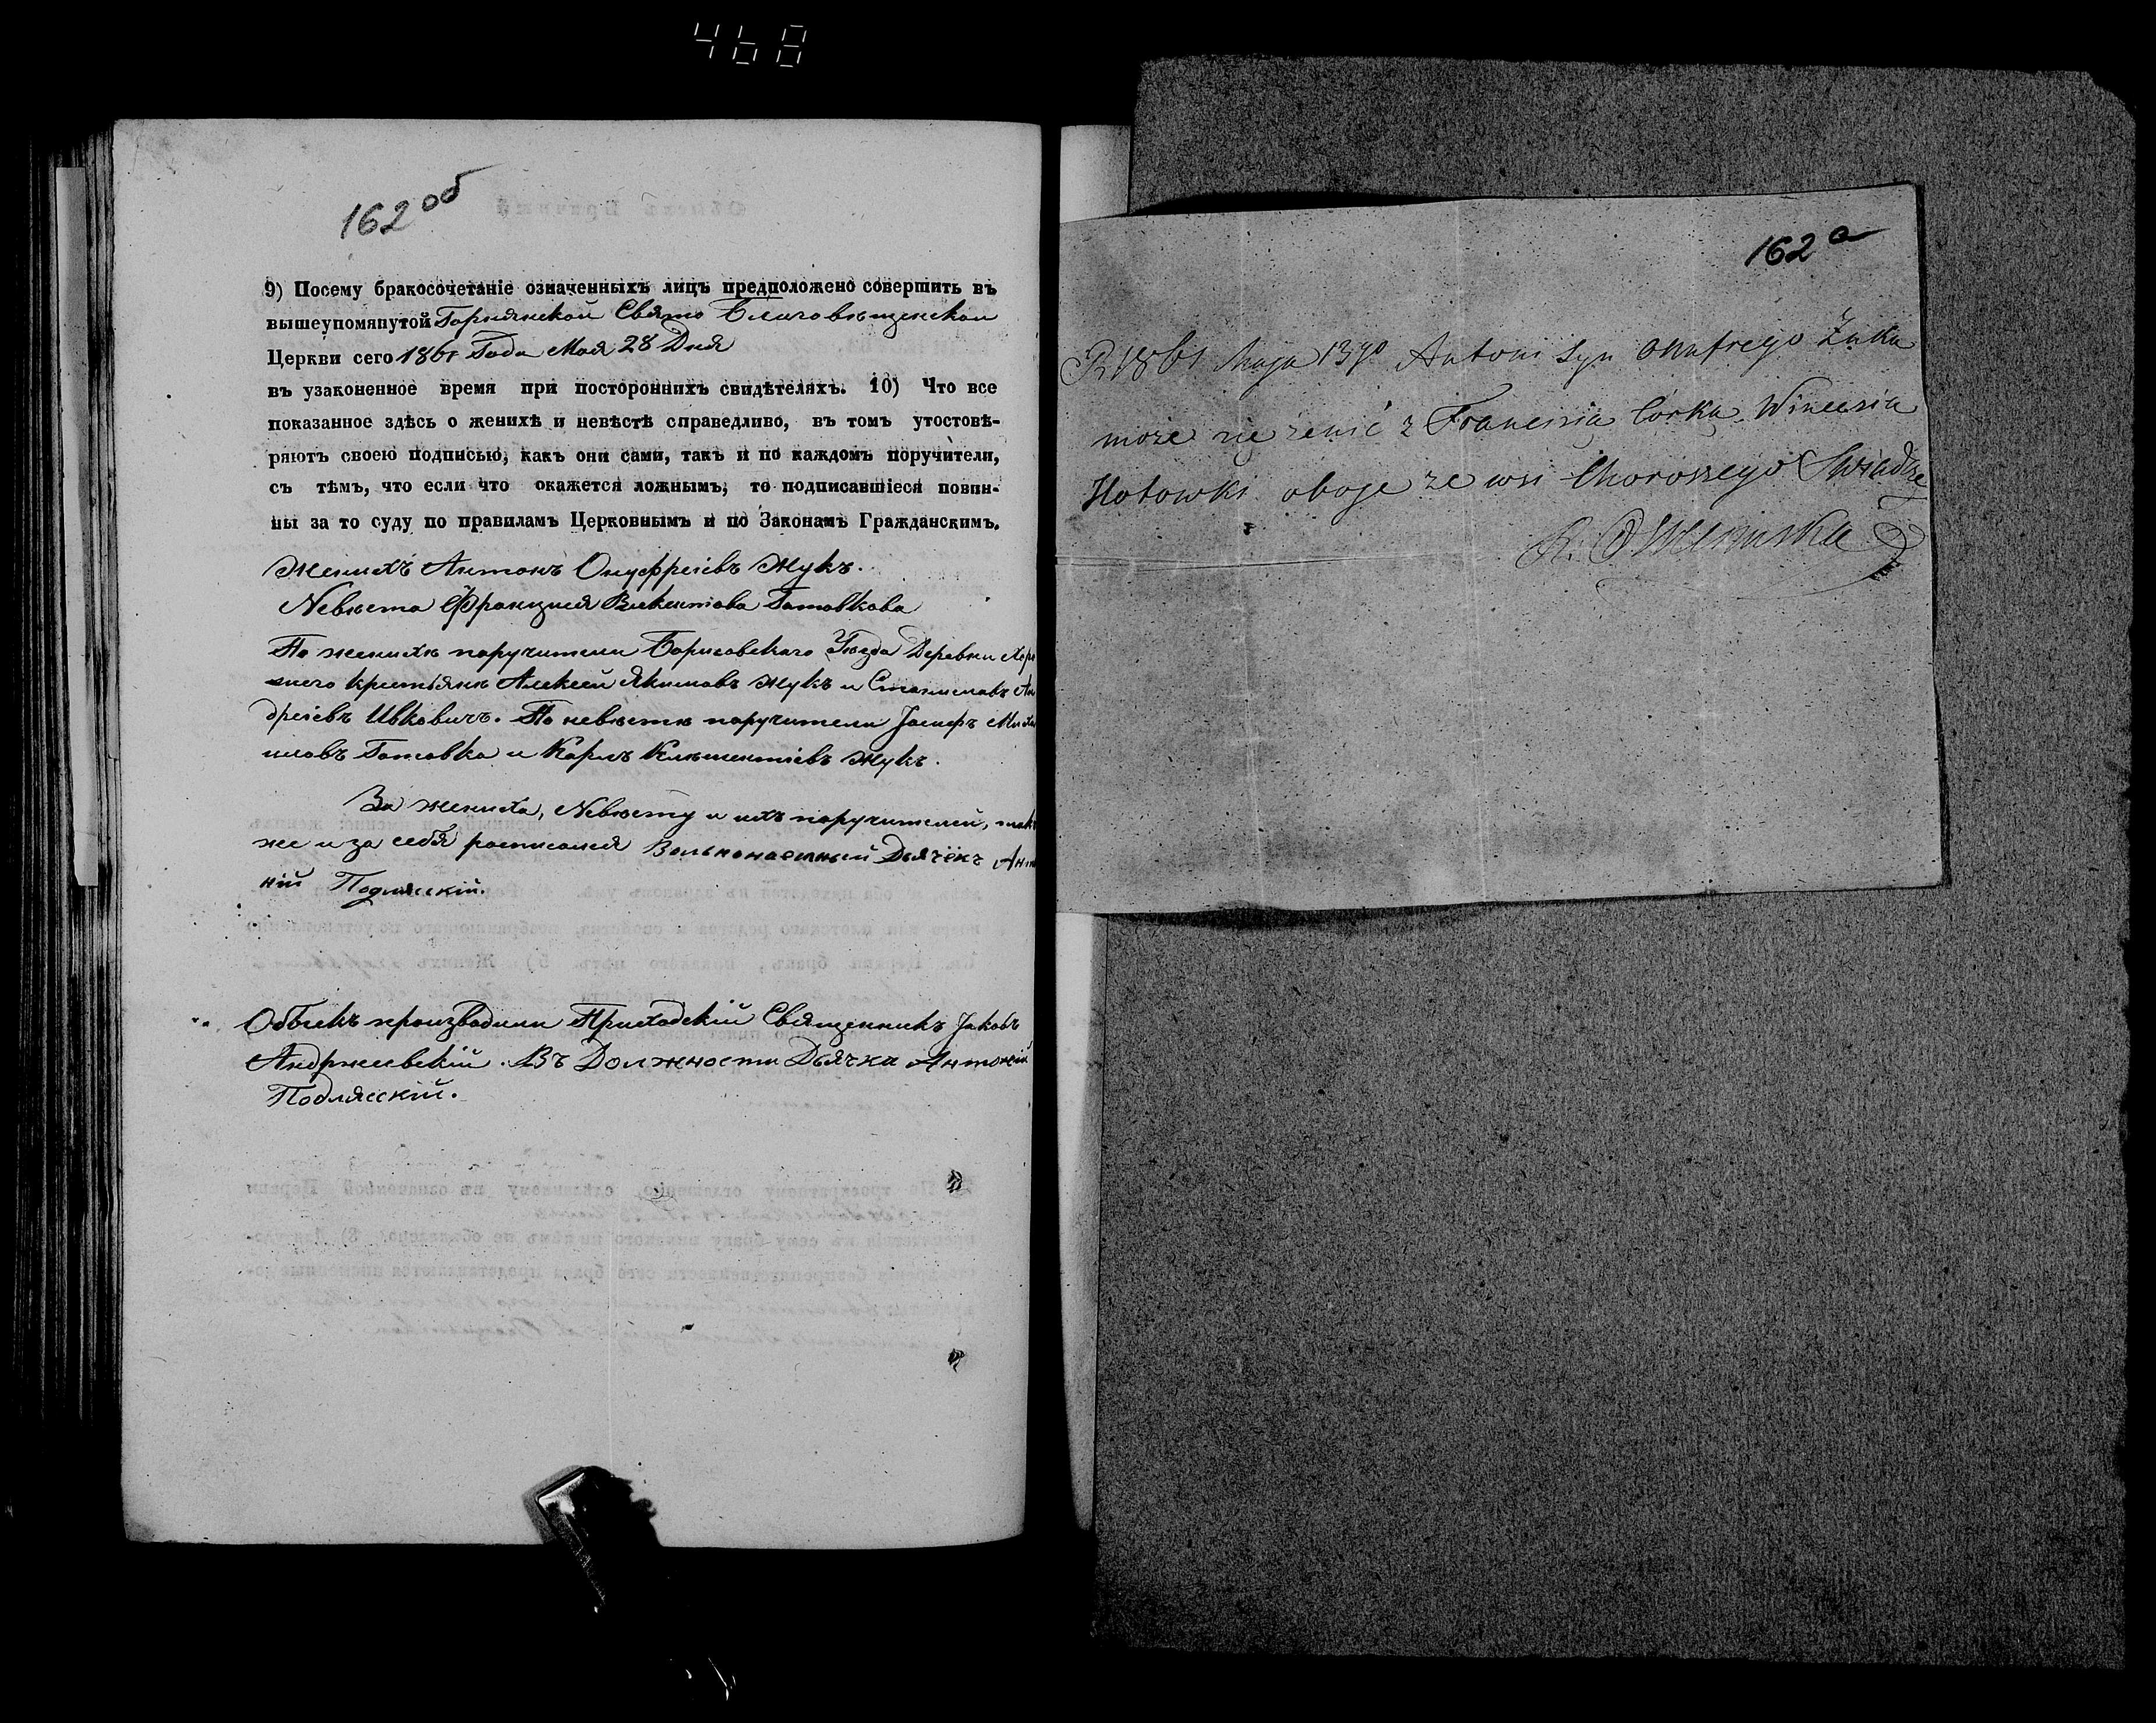 468
162 об
9) Посему бракосочетаніе означенныхъ лицъ предположено совершить въ
вышеупомянутой Горнянской Свято Благовѣщенской
Церкви сего 1861 Года Мая 28 Дня
въ узаконенное время при постороннихъ свидѣтеляхъ. 10) Что все
показанное здѣсь о женихѣ и невѣстѣ справедливо, въ томъ утостовѣ-
ряютъ своею подписью, какъ они сами, такъ и по каждомъ поручители,
съ тѣмъ, что если что окажется ложнымъ, то подписавшіеся повин-
ны за то суду по правиламъ Церковнымъ и по Законамъ Гражданскимъ.
Женихъ Антонъ Онуфріевъ Жукъ.
Невѣста Франція Викентова Готовкова
По женихѣ поручители Борисовскаго Уѣзда Деревни
крестьяне Алексей Якимовъ Жукъ и Станиславъ Ан
дреевъ Ивковичъ. По невѣстѣ поручители Іосифъ Миха
иловъ Готовка и Карлъ Клементіевъ Жукъ.
За жениха, Невѣсту и ихъ поручителей, такъ
же и за себя росписался Вольнонаемный Дьячёкъ Анто
ній Подляскій.
Обыскъ производили Приходскій Священникъ Іаковъ
Андржеевскій. Въ Должности Дьячка Антоній
Подляскій.
162 а
R 1861 Maja 13go Antoni syn Onufrego Żuka
może się żenić z Francisią Corką Wincesia
Hotowki oboje ze wsi Chorossego Swiadczę